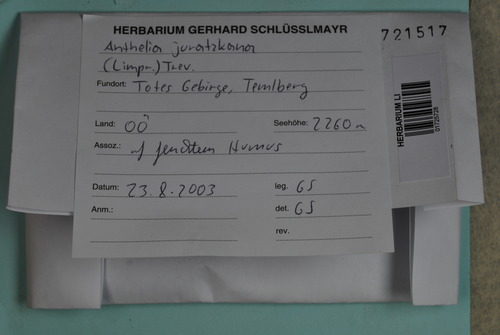 HERBARIUM GERHARD SCHLÜSSLMAYR
721517
Anthelia juratzkana
(Limpr.) Trev.
Fundort: Totes Gebirge, Temlberg
Land: OÖ Seehöhe: 2260m
Assoz.: auf feuchtem Humus
Datum: 23.8.2003 leg. GS
Anm.: det. GS
rev.
HERBARIUM LI
01725728